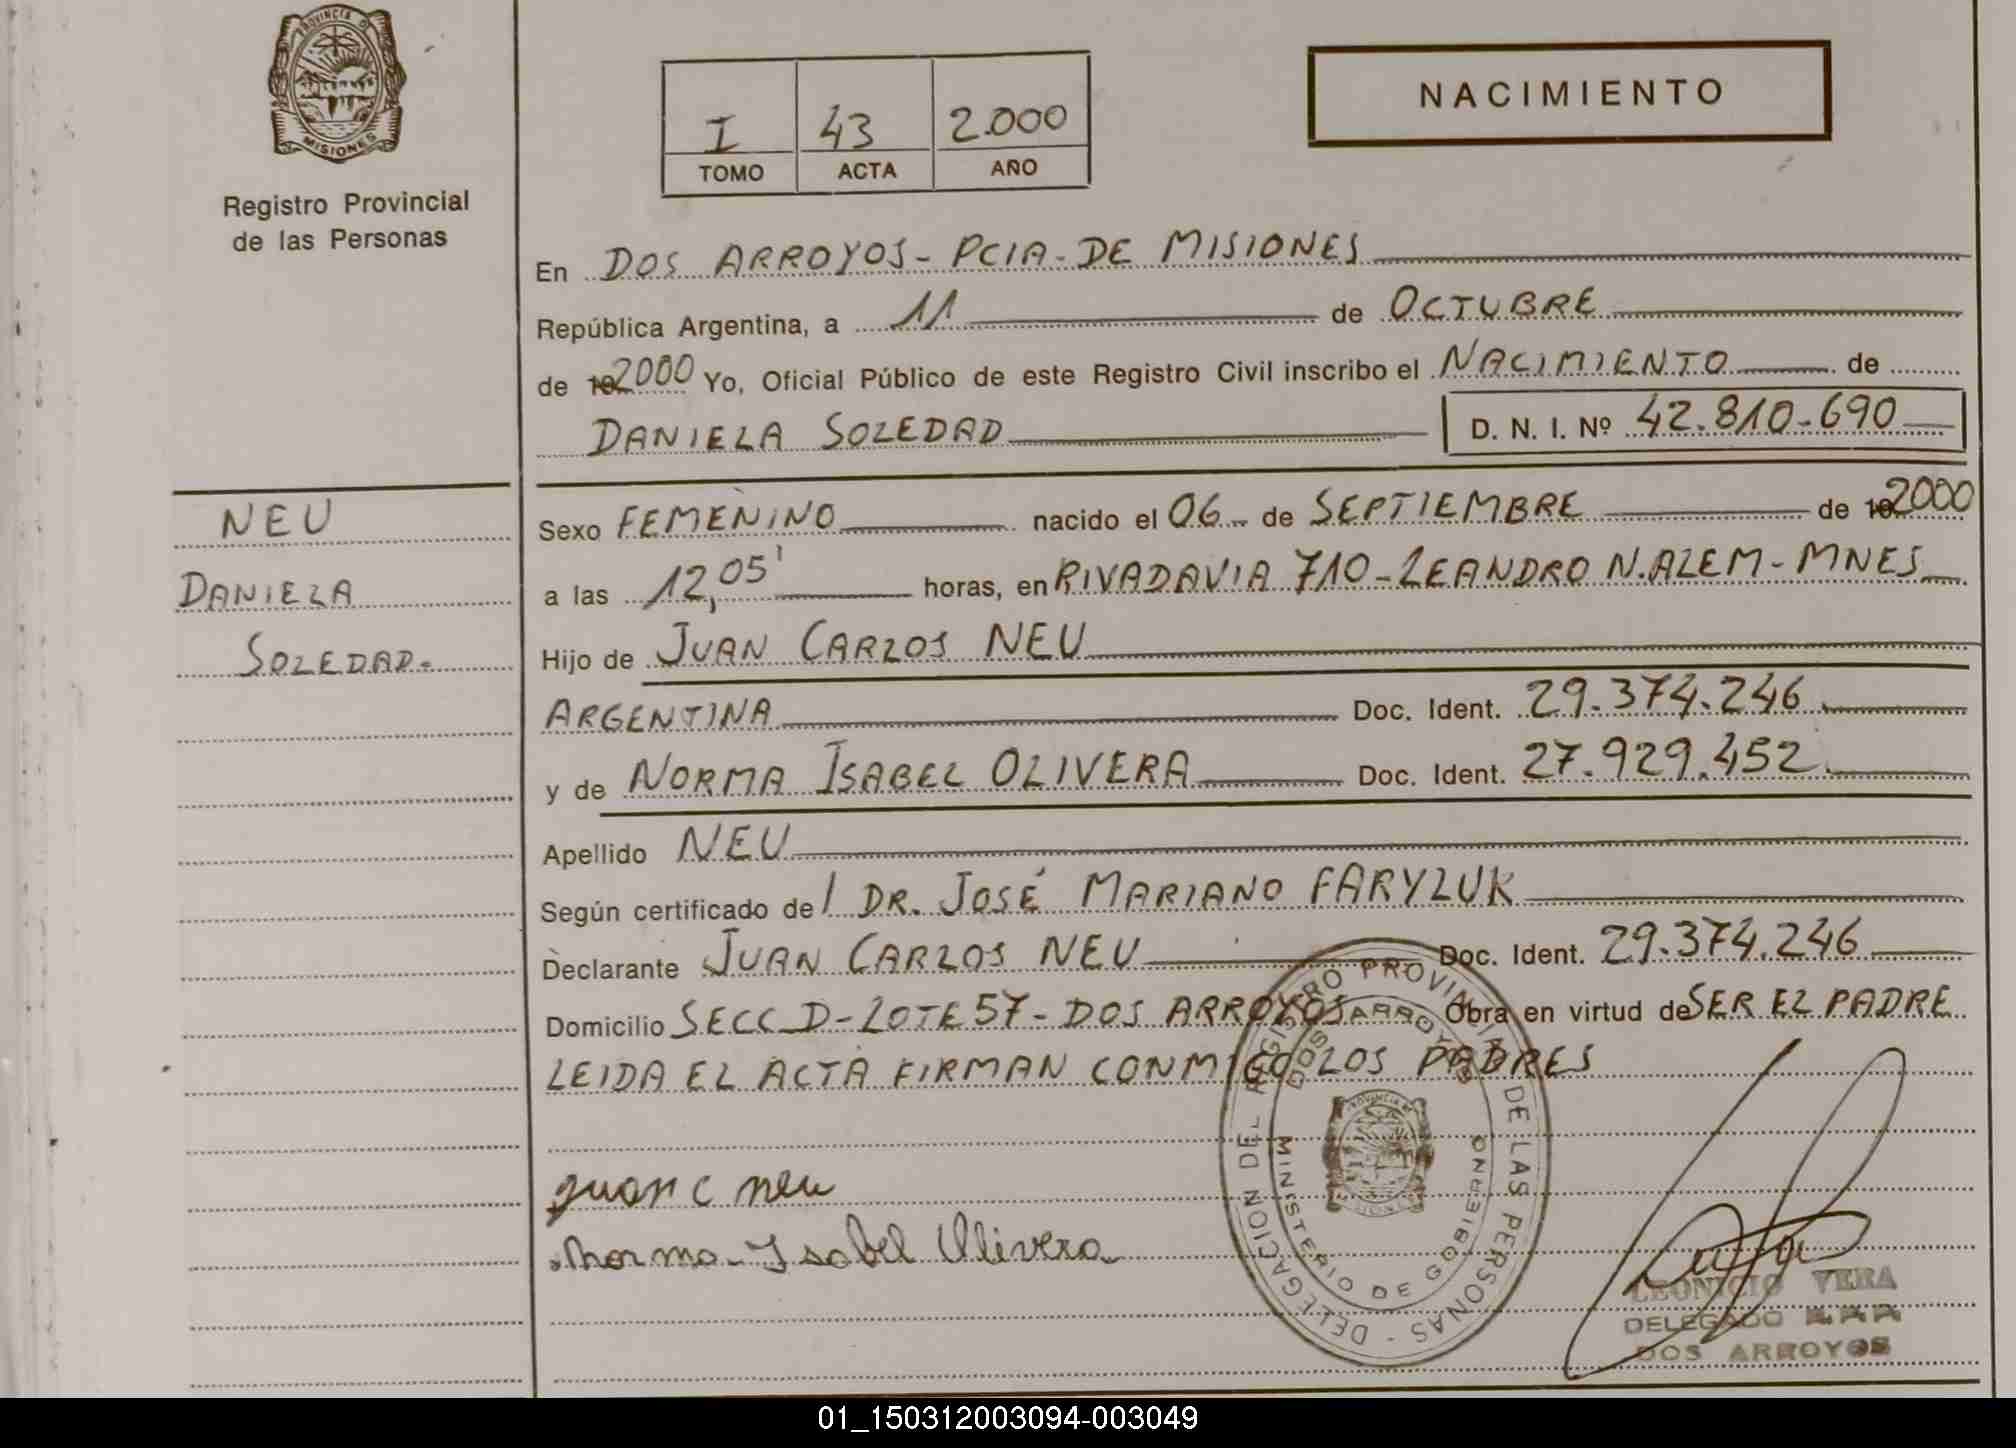 PROVINCIA DE
MISIONES
Registro Provincial
de las Personas
I 43 2.000
TOMO ACTA AÑO
NACIMIENTO
En DOS ARROYOS - PCIA - DE MISIONES
República Argentina, a 11 de OCTUBRE
de 192000 Yo, Oficial Público de este Registro Civil inscribo el NACIMIENTO de
DANIELA SOLEDAD D. N. I. Nº 42.810.690
NEU
DANIELA
SOLEDAD.
Sexo FEMENINO nacido el 06 de SEPTIEMBRE de 192000
a las 12,05' horas, en RIVADAVIA 710 - LEANDRO N. ALEM - MNES
Hijo de JUAN CARLOS NEU
ARGENTINA Doc. Ident. 29.374.246
y de NORMA ISABEL OLIVERA Doc. Ident. 27.929.452
Apellido NEU
Según certificado de / DR. JOSÉ MARIANO FARYLUK
Declarante JUAN CARLOS NEU Doc. Ident. 29.374.246
Domicilio SECC D - LOTE 57 - DOS ARROYOS Obra en virtud de SER EL PADRE
LEIDA EL ACTA FIRMAN CONMIGO LOS PADRES
juan c neu
Norma Isabel Olivera
REGISTRO PROVINCIAL DE LAS PERSONAS - DELEGACION DE -
DOS ARROYOS
MINISTERIO DE GOBIERNO
LEONICIO VERA
DELEGADO
DOS ARROYOS
01_150312003094-003049